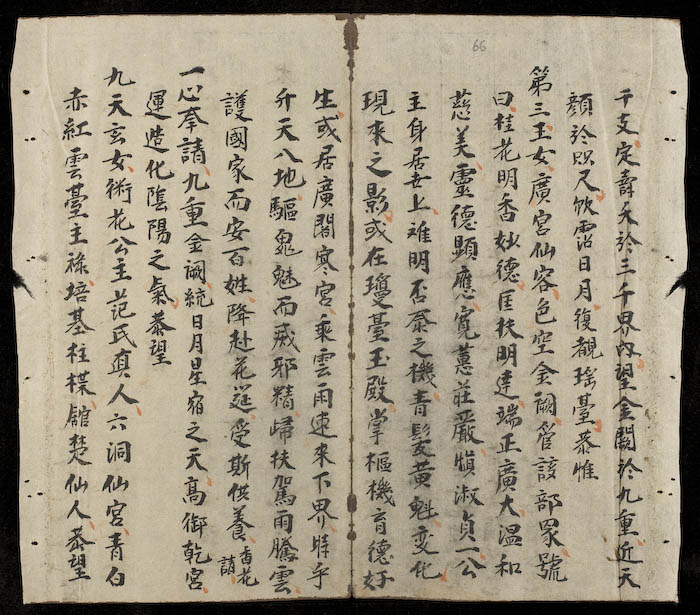 66
干支定壽夭於三千界內望金闕於九重近天
顏於咫尺飲霑日月復覩瑤臺恭惟
第三玉女廣宮仙容色空金闕管該部眾號
曰桂花明香妙德匡扶明達端正廣大溫和
慈美靈德顯應寬蕙莊嚴慎淑貞一公
主身居世上難明否泰之機青髮黃魁變化
現來之影或在瓊臺玉殿掌樞機育德好
生或居廣闊寒宮乘雲雨速來下界時乎
升天入地驅鬼魅而威邪精歸扶駕雨騰雲
護國家而安百姓降赴花筵受斯供養香花請
一心奉請九重金闕統日月星宿之天高御乾宮
運造化陰陽之氣恭望
九天玄女術花公主范氏真人六洞仙宮青白
赤紅雲臺主祿培基柱楪館楚仙人恭望